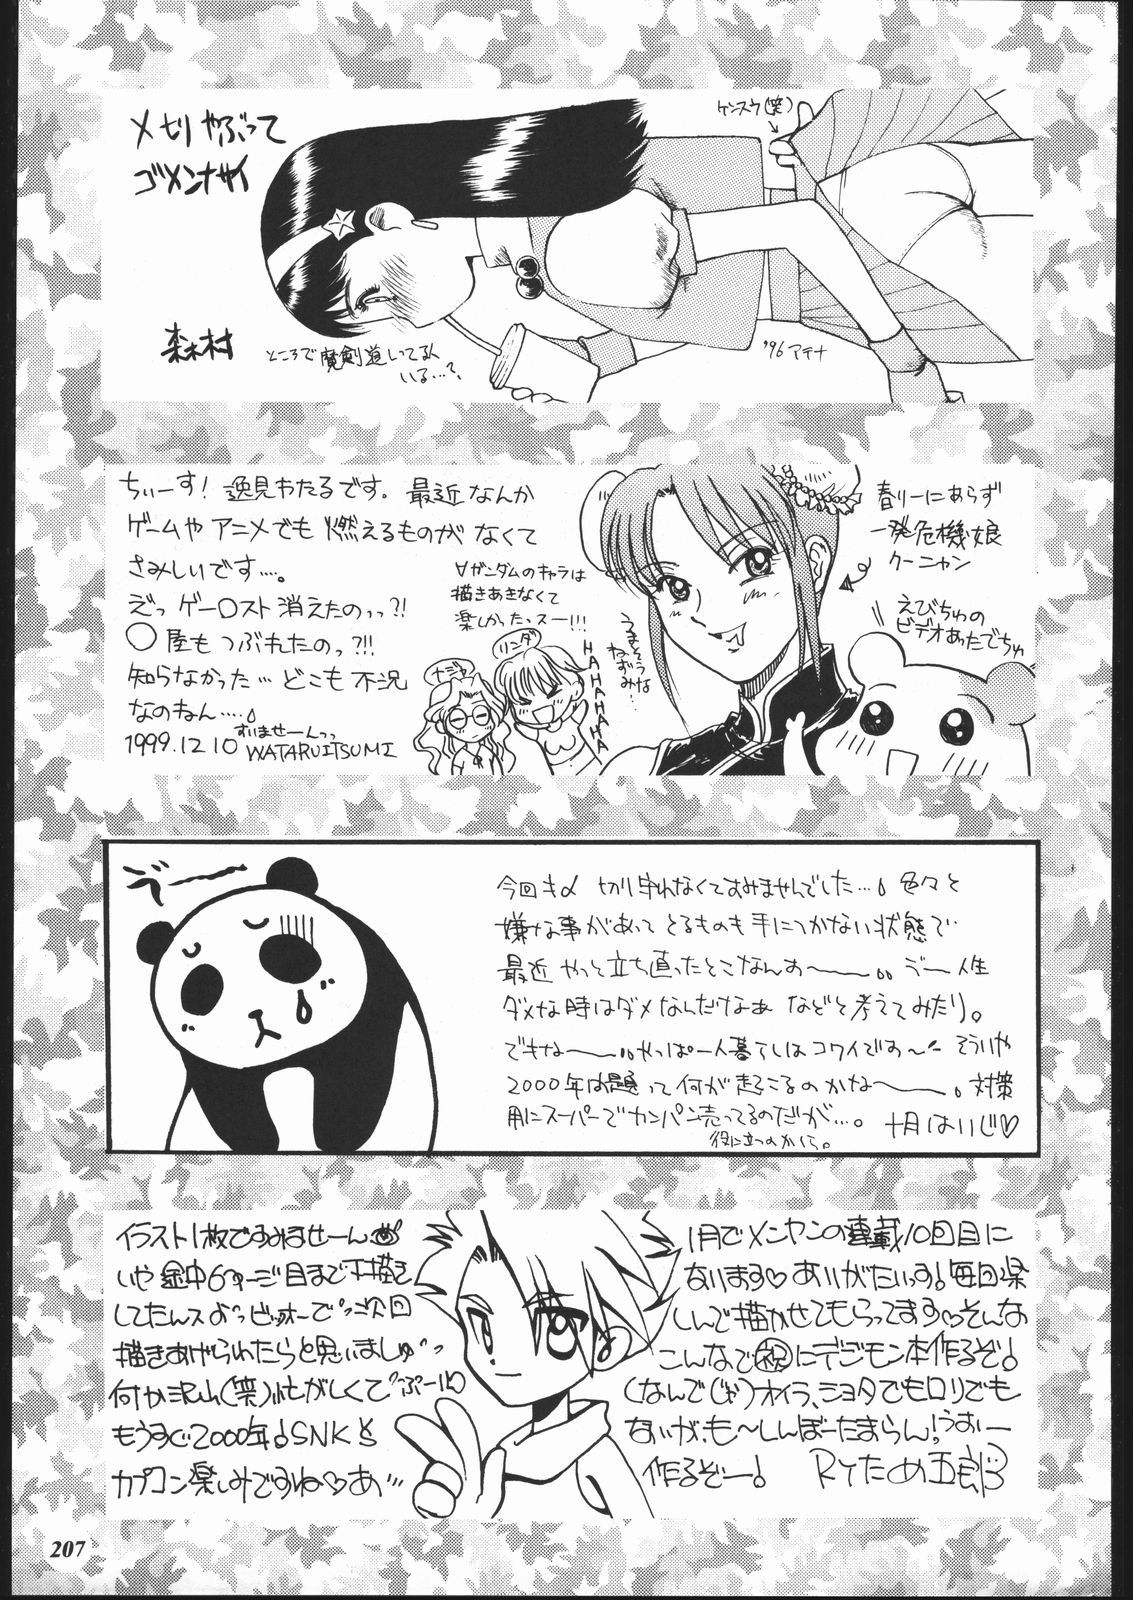 メ切りやぶって
ゴメンナサイ
森村
ところで魔剣道してる人
いる…?
ケンスウ(笑)
'96 アテナ
ちぃーす! 逸見わたるです。最近なんか
ゲームや アニメでも 燃えるものが なくて
さみしいです….
えっゲー〇スト消えたのっっ?!
〇屋も つぶれたのっ?!!
知らなかった… どこも 不況
なのねん….
すいませーんっっ
1999.12.10 WATARU ITSUMI
∀ガンダムのキャラは
描きあきなくて
楽しかったっスー!!!
リンダ
HAHAHAHAHA
うまそうな
ねずみ…!
春リーにあらず
一発危機娘
クーニャン
えびちゅの
ビデオあったでちゅ
今回も〆切り守れなくてすみませんでした… 色々と
嫌な事があって とるものも手につかない状態で…
最近 やっと立ち直ったとこなんす〜。 う゛ー人生
ダメな時はダメなんだなぁ などと考えてみたり。
できな〜。やっぱ一人暮らしはコワイです〜 そういや
2000年問題って何が起こるのかな〜。対策
用にスーパーでカンパン売ってるのだが…。十月はいじ♡
役に立つのかして。
イラスト1枚ですみませーん
いや 途中6ページ目まで下描き
してたんスよっ ビッォーでっ 次回
描きあげられたらと思いましゅっ
何か沢山(笑)忙がしくてぶーしゅ
もうすぐ2000年 SNKと
カプコン楽しみですね♡あ…
1月でメンヤンの連載10回目に
なります♡ありがたいっす!毎回楽
しんで描かせてもらってます♡そんな
こんなで㊗にデジモン本作るぞ!
(なんでじゃ)オイラ、ショタでもロリでも
ないが、も〜しんぼーたまらん!うぉー
作るぞー!
RYため五郎
207